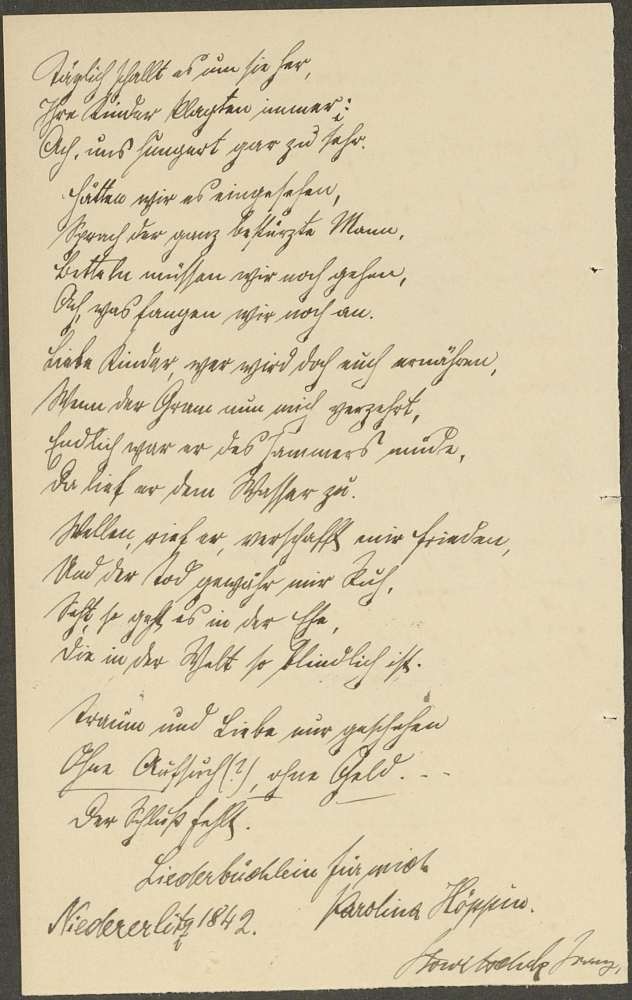 Täglich schallt es um sie her,
Ihre Kinder klagten immer:
Ach, uns hungert gar zu sehr.
Hätten wir es eingesehen,
Sprach der ganz bestürzte Mann,
Betteln müssen wir noch gehen,
Ach, was fangen wir noch an.
Liebe Kinder, wer wird doch euch ernähren,
Wenn der Gram nun mich verzehrt,
Endlich war er des Jammers müde,
Da lief er dem Wasser zu.
Wellen, rief er, verschafft mir Frieden,
Und der Tod gewähr mir Ruh,
Seht, so geht es in der Ehe,
Die in der Welt so blindlich ist.
Traum und Liebe nur geschehen
Ohne Aufsuch(?), ohne Geld. - -
Der Schluß fehlt.
Liederbüchlein für mich
Karolina Höppin.
Niedererlitz 1842.
Franz,